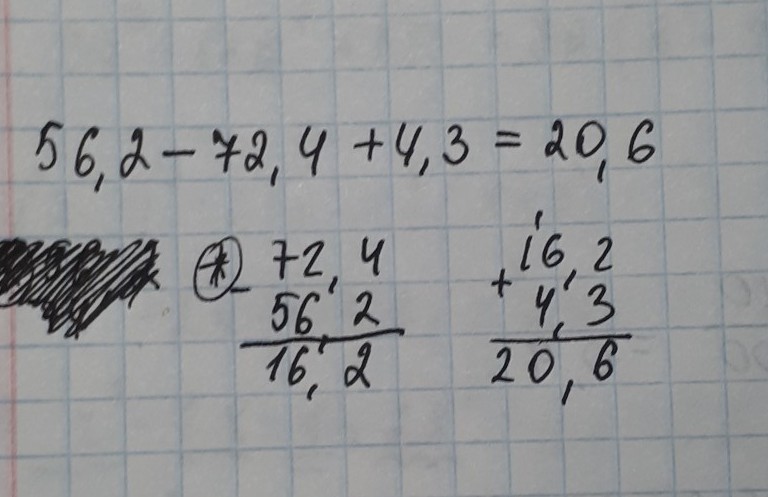 56,2 − 72,4 + 4,3 = 20,6
* − 72,4
56,2
16,2
1
+ 16,2
4,3
20,6